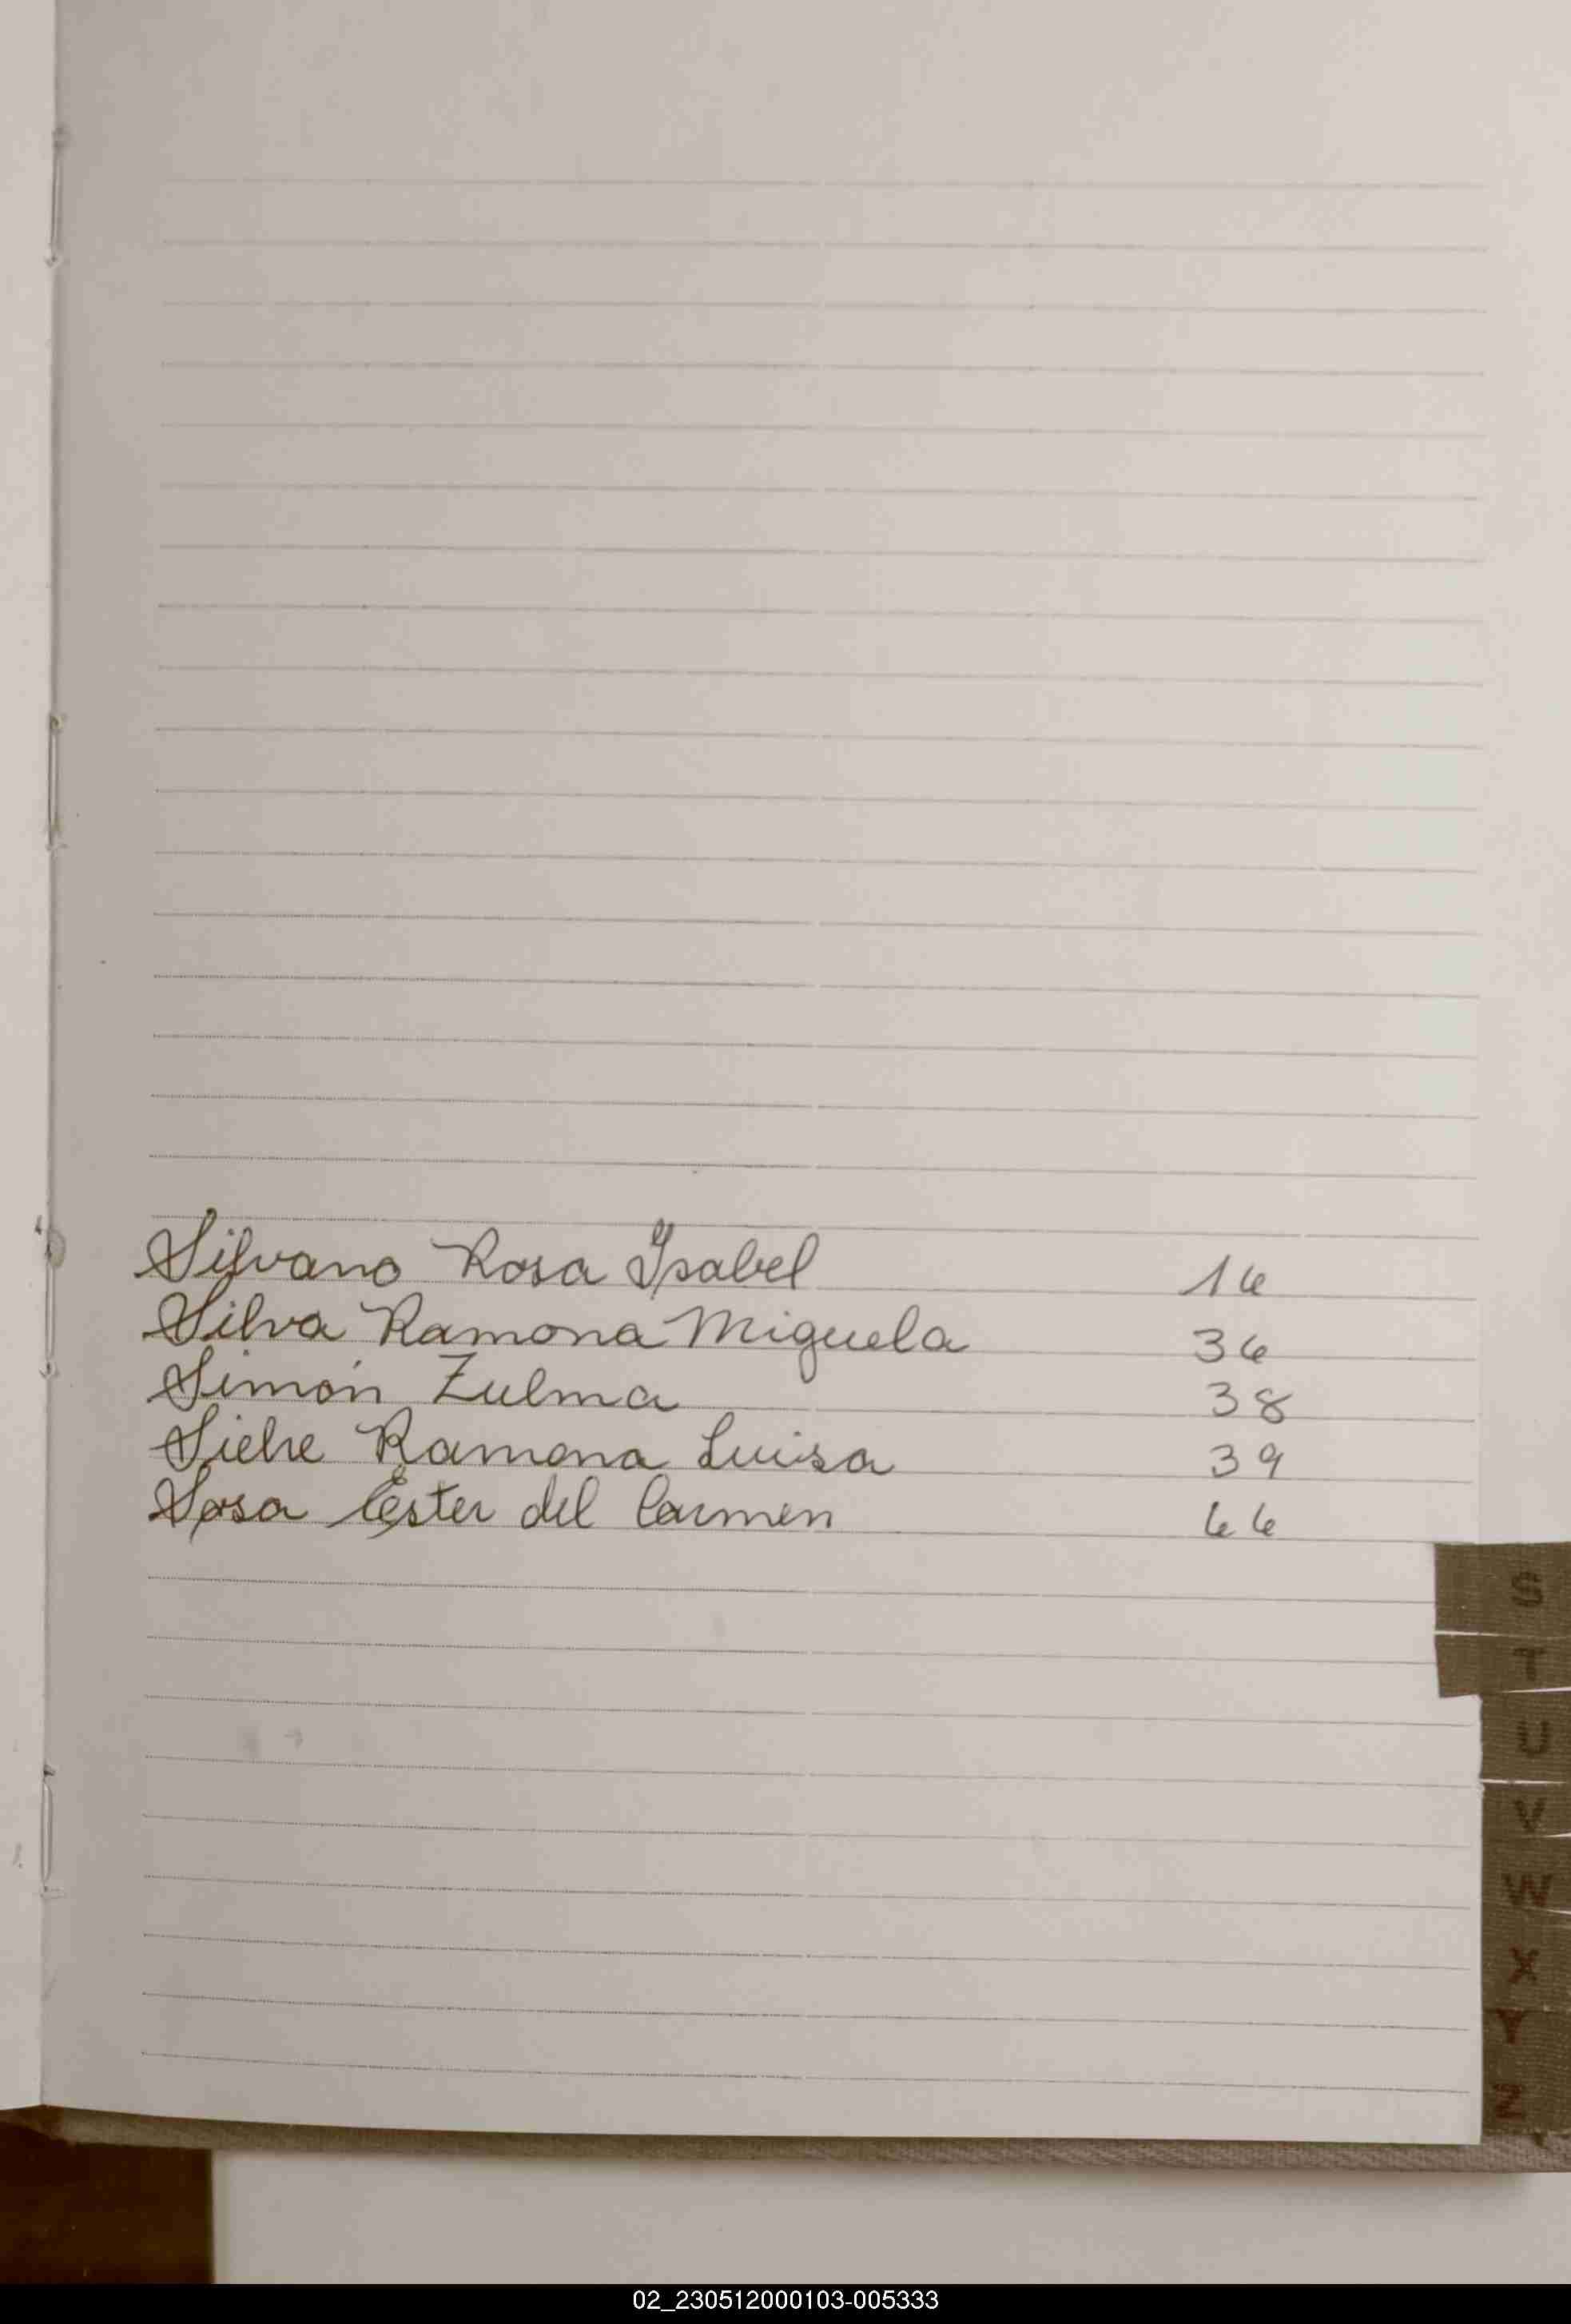 Silvano Rosa Isabel 16
Silva Ramona Miguela 36
Simón Zulma 38
Ramona Luisa 39
Sosa Ester del Carmen 66
S
T
U
V
W
X
Y
Z
02_230512000103-005333